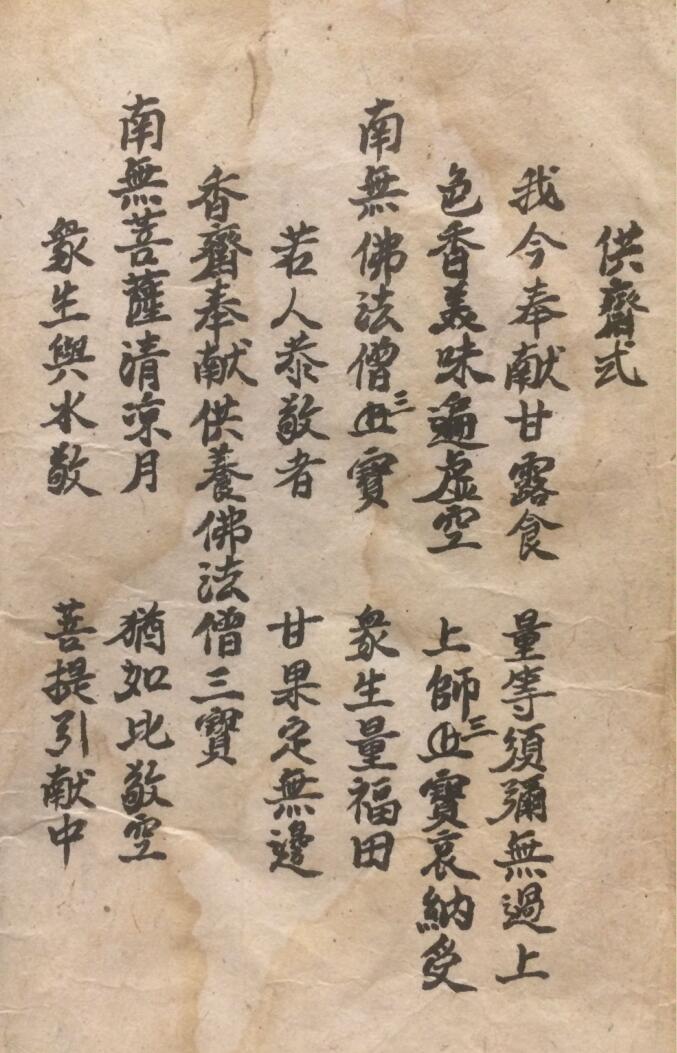 供齋式
我今奉献甘露食 量等須彌無過上
色香美味遍虚空 上師三寶哀納受
南無佛法僧三寶 衆生量福田
若人恭敬者 甘果定無邊
香齋奉献供養佛法僧三寶
南無菩薩清凉月 猶如比敬空
衆生與水敬 菩提引献中